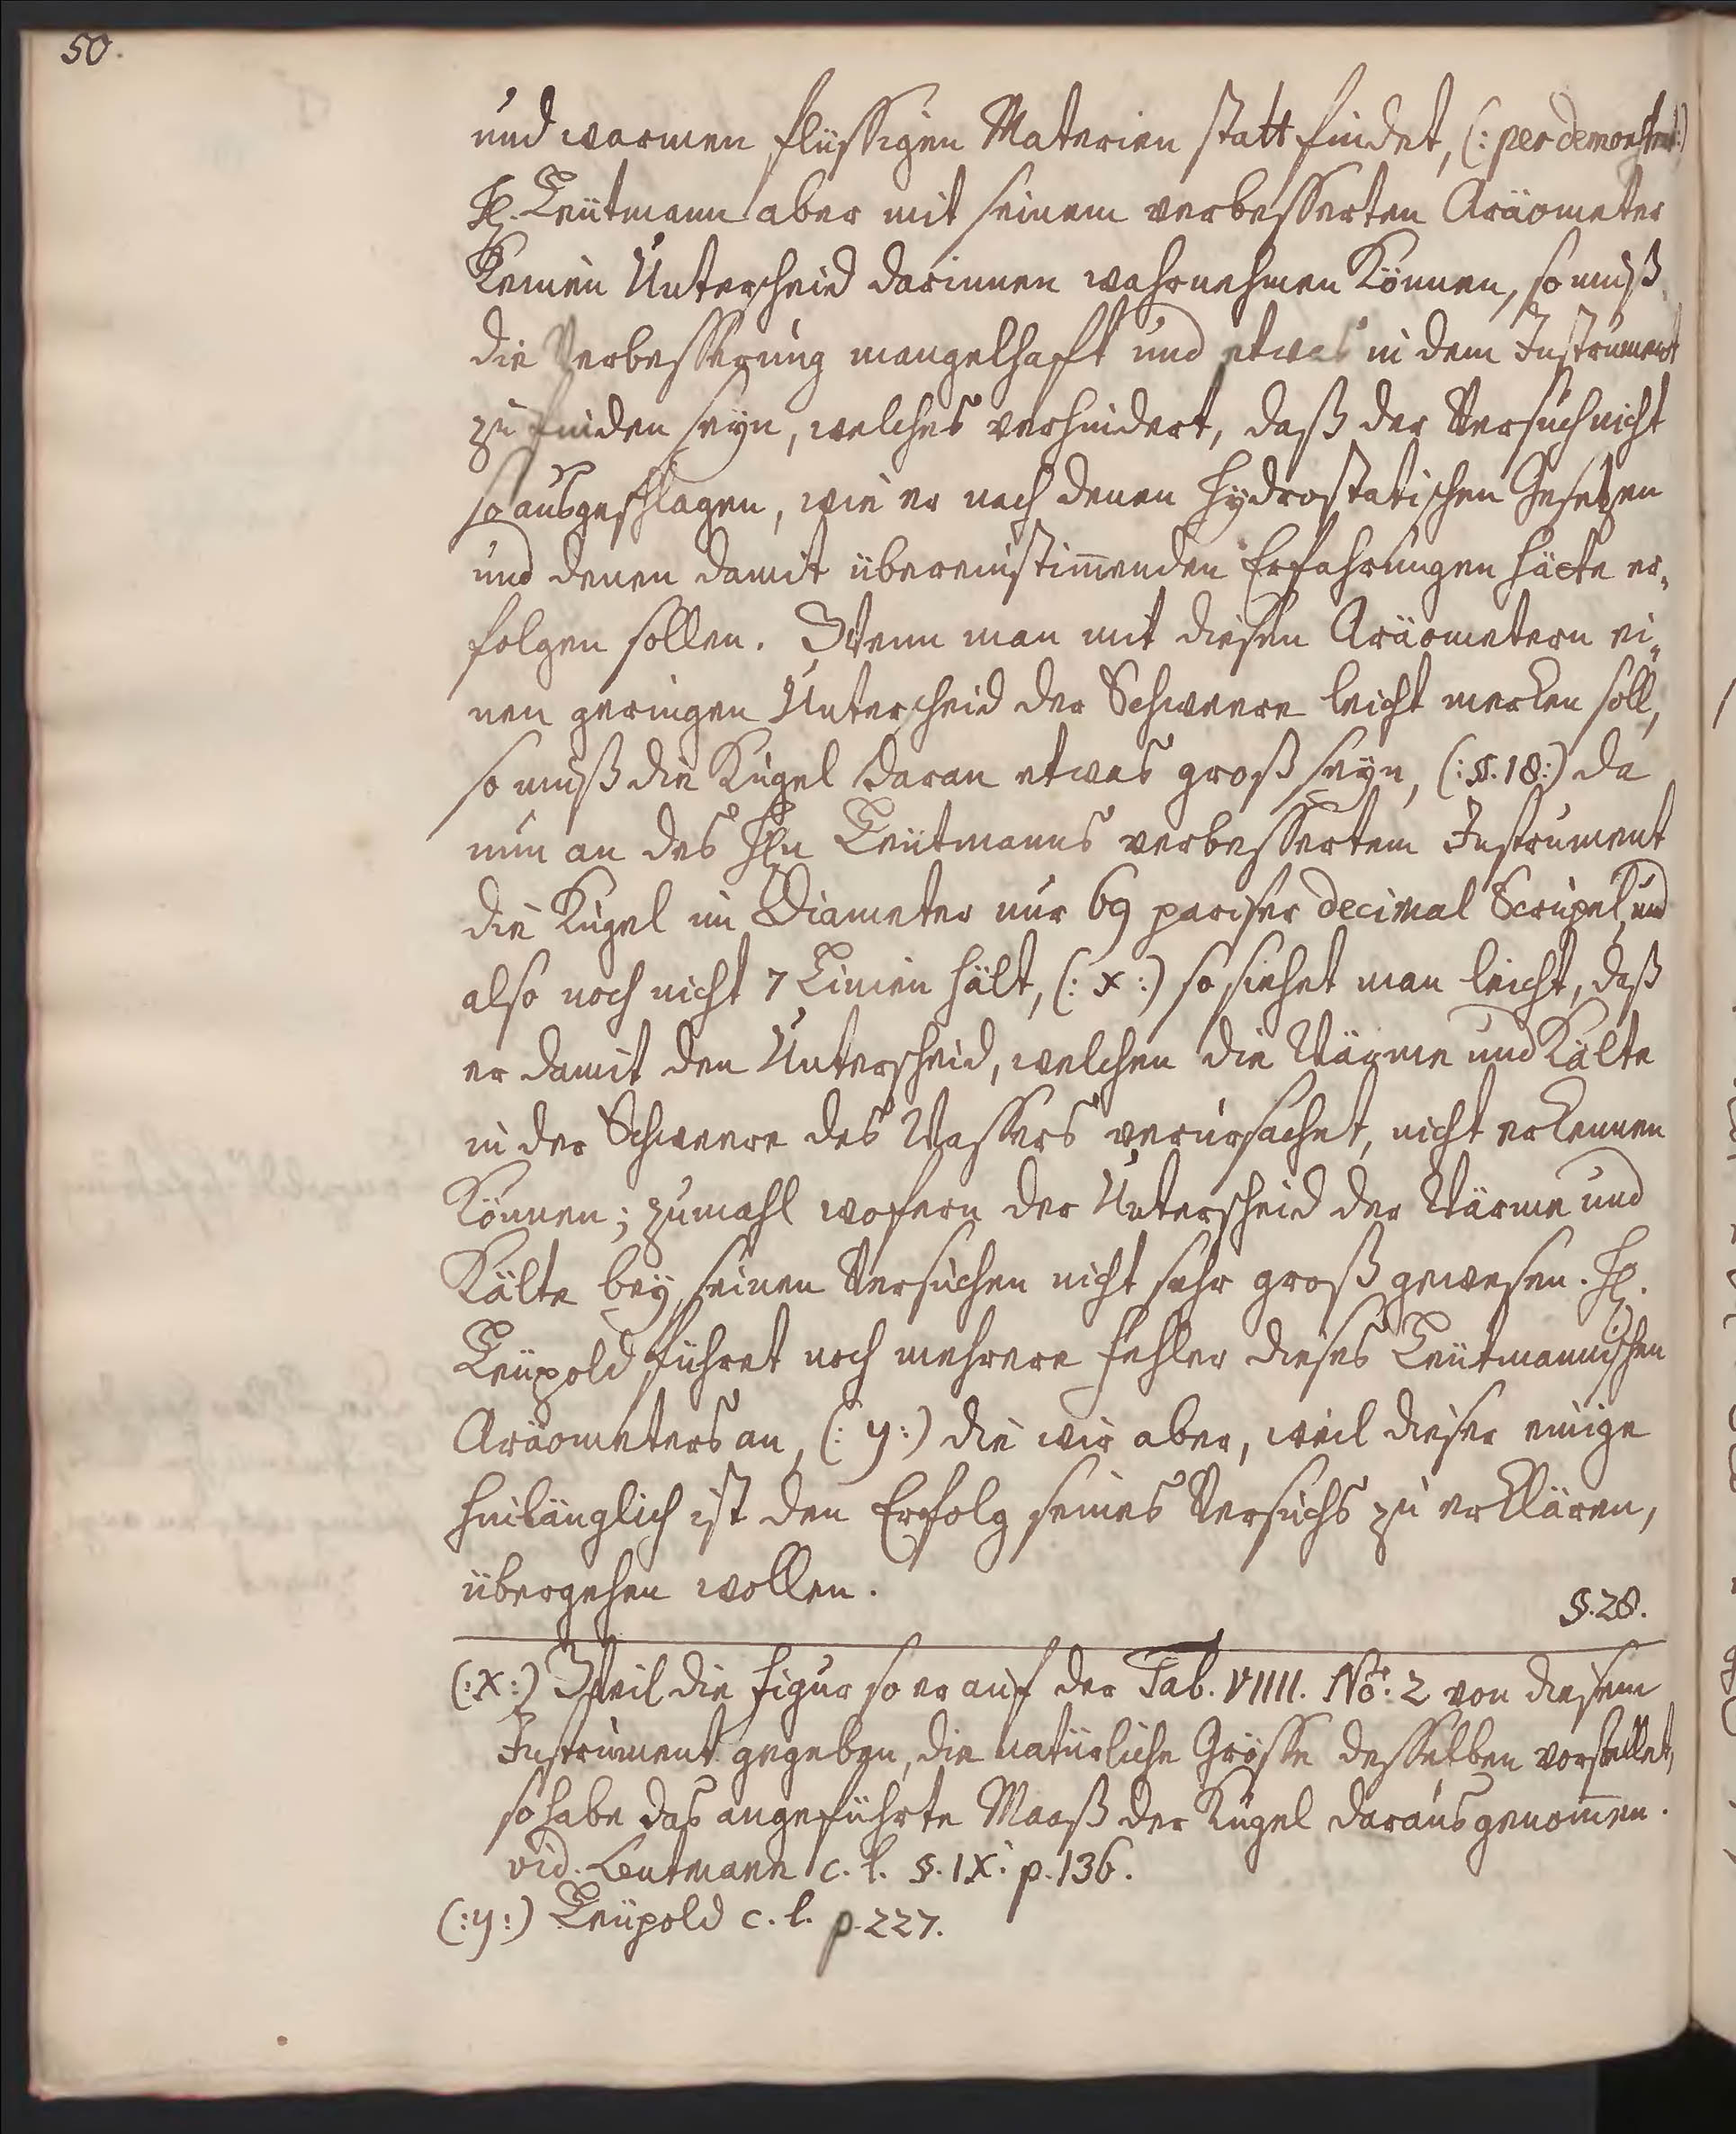 50.
und warmen flüssigen Materien statt findet, (: per demonstrat :)
H. Leütmann aber mit seinem verbesserten Aräometer
keinen Unterscheid darinnen wahrnehmen können, so muß
die Verbesserung mangelhafft und etwas in dem Instrument
zu finden seyn, welches verhindert, daß der Versuch nicht
so ausgeschlagen, wie er nach denen Hydrostatischen Gesetzen
und denen damit übereinstim̅enden Erfahrungen hätte er„
folgen sollen. Wenn man mit diesen Aräometern ei„
nen geringen Unterscheid der Schweere leicht merken soll,
so muß die Kugel daran etwas groß seyn, (: §. 18 :) da
nun an des Hn Leütmanns verbessertem Instrument
die Kugel im Diameter nur 69 pariser decimal Scrupel, und
also noch nicht 7 Linien hält, (: x :) so siehet man leicht, daß
er damit den Unterscheid, welchen die Wärme und Kälte
in der Schweere des Wassers verursachet, nicht erkennen
können; zumahl wofern der Unterscheid der Wärme und
Kälte bey seinen Versuchen nicht sehr groß gewesen. H.
Leüpold führet noch mehrere Fehler dieses Leütmannischen
Aräometers an, (: y :) die wir aber, weil dieser einige
hinlänglich ist den Erfolg seines Versuchs zu erklären,
übergehen wollen.
§. 28.
(: x :) Weil die Figur so er auf der Tab. VIIII. No: 2 von diesem
Instrument gegeben, die natürliche Grösse desselben vorstellet,
so habe das angeführte Maaß der Kugel daraus genom̅en.
vid. Leutmann c. l. §. IX. p. 136.
(: y :) Leüpold c. l. p. 227.